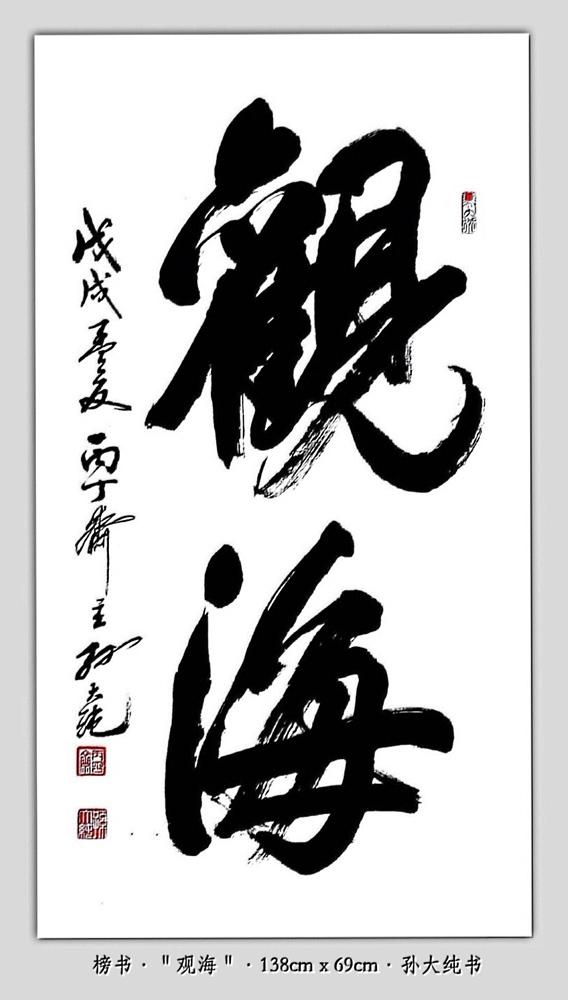 觀海
戊戌孟夏丙丁齋主孙大纯
榜书·"观海"·138cm x 69cm·孙大纯书